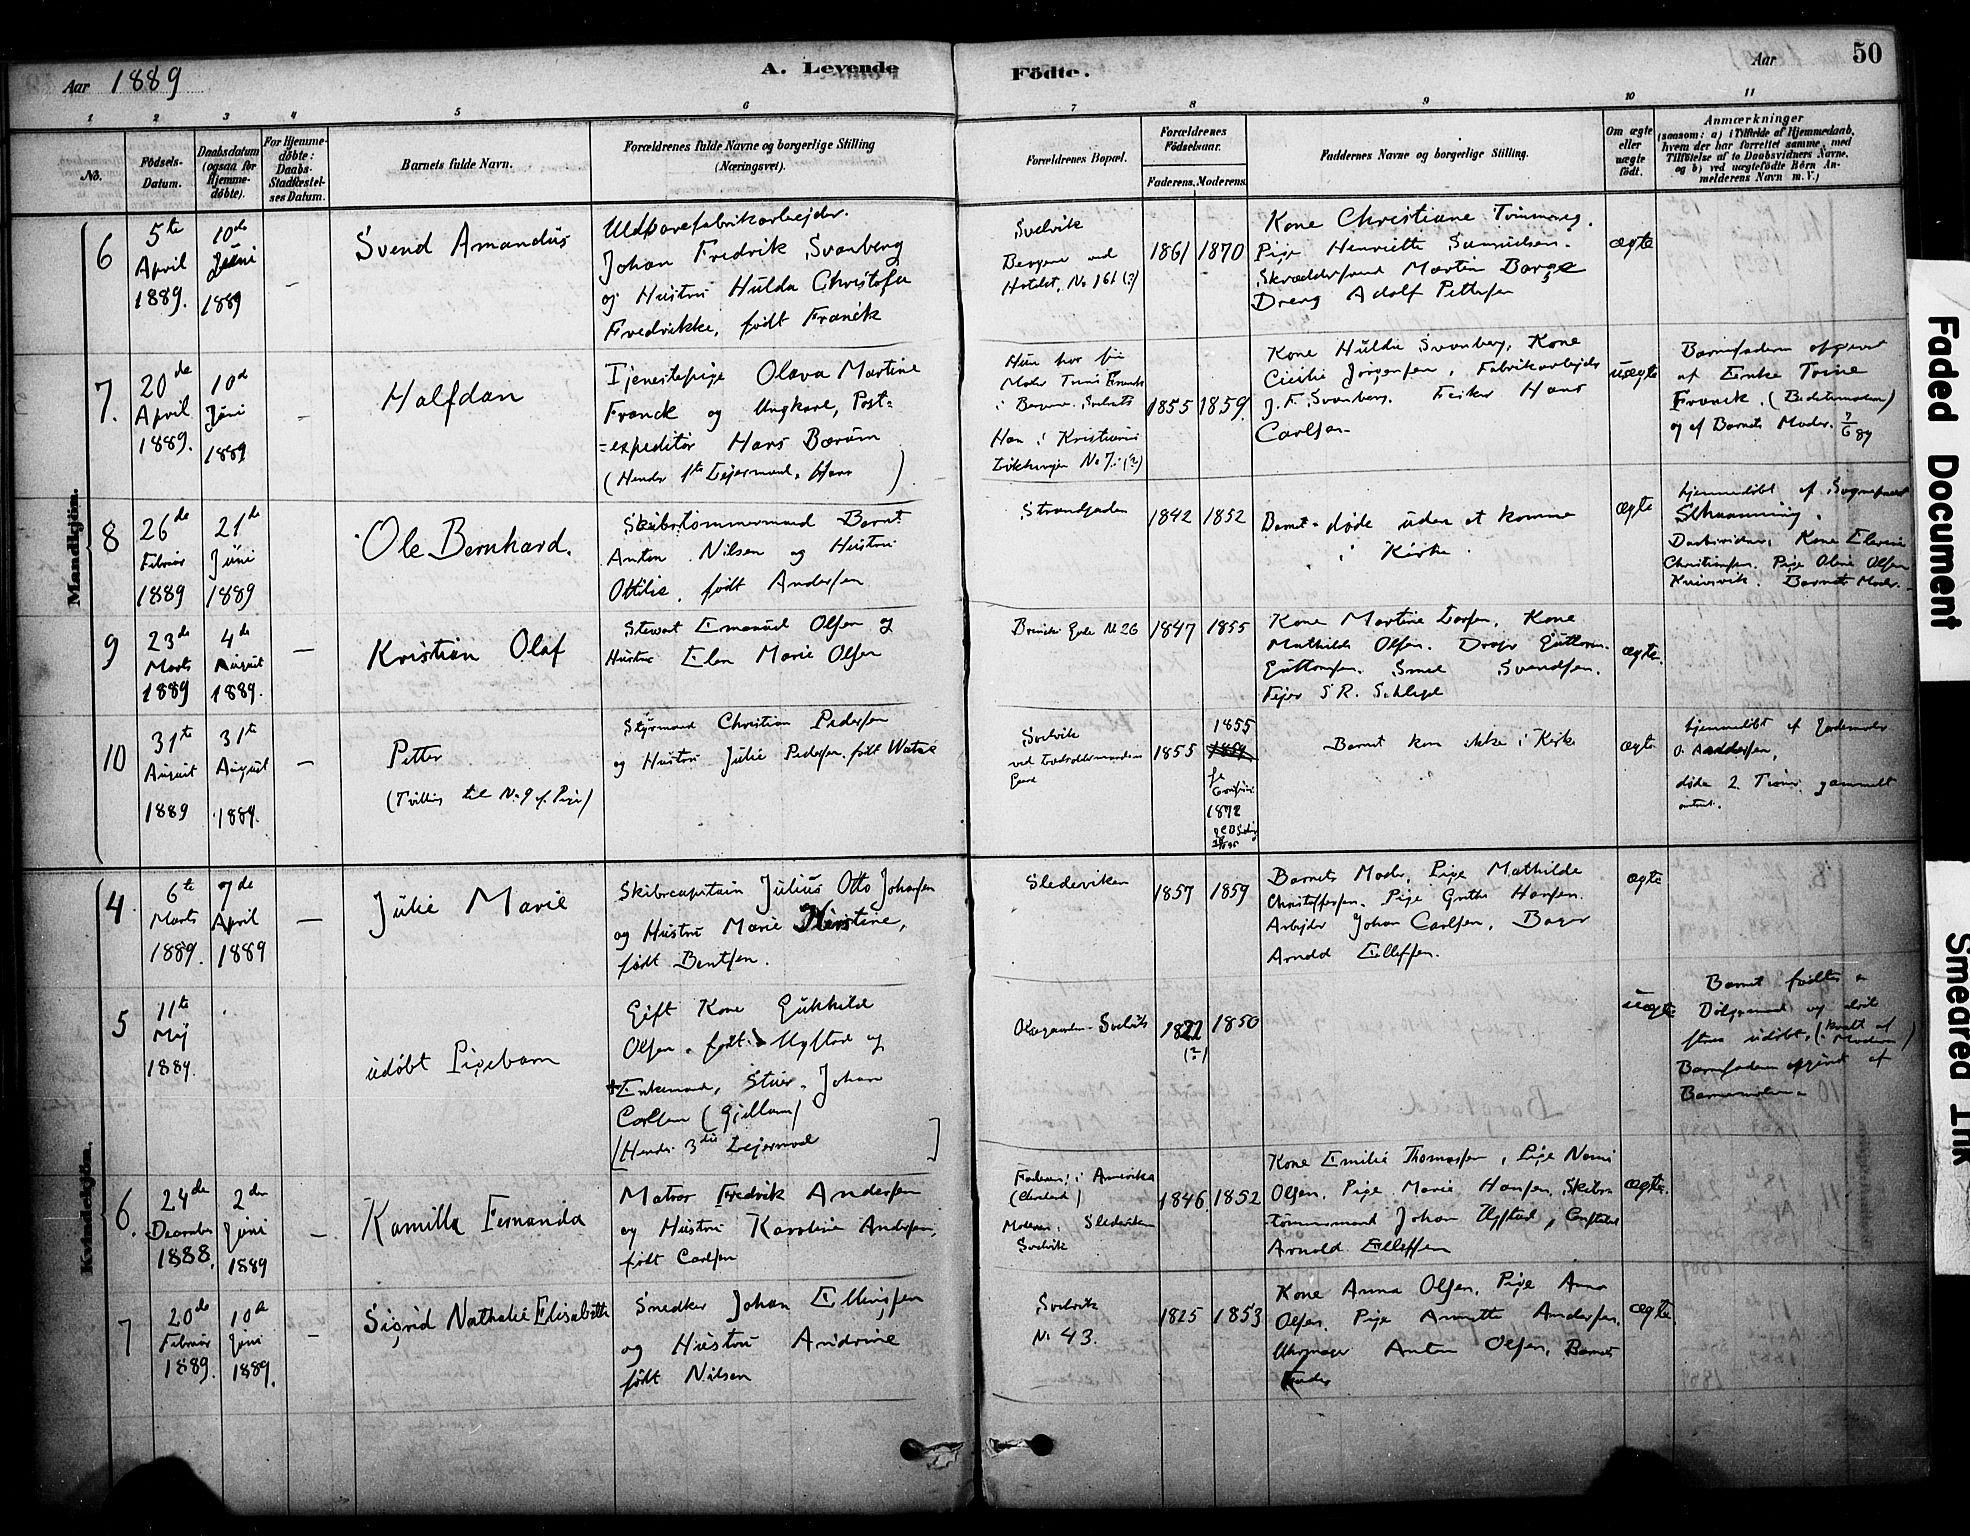 Aar 1889
A. Levende
Fødte.
Aar
50
1 2 3 4 5 6 7 8 9 10 11
No.
Fødsels-
Datum.
Daabsdatum
(ogsaa for
Hjemme-
døbte).
For Hjemme-
døbte:
Daabs-
Stadfæstel-
ses Datum.
Barnets fulde Navn.
Forældrenes fulde Navne og borgerlige Stilling
(Næringsvei).
Forældrenes Bopæl.
Forældrenes
Fødselsaar.
Faderens. Moderens.
Faddernes Navne og borgerlige Stilling.
Om ægte
eller
uægte
født.
Anmærkninger
(saasom: a) i Tilfælde af Hjemmedaab,
hvem der har forrettet samme, med
Tilføielse af to Daabsvidners Navne,
og b) ved uægtefødte Børn An-
melderens Navn m. V.)
Mandkjøn.
6
5te
April
1889.
10de
Juni
1889
Svend Amandus
Uldvarefabrikarbejder.
Johan Fredrik Svanberg
og Hustru Hulda Christofa
Fredrikke, født Franck
Svelvik
Bergene ved
Hotelet, No 161 (?)
1861
1870
Kone Christiane
Pige Henriette
Martin
Dreng Adolf Pettersen
ægte
7.
20de
April
1889.
10de
Juni
1889
Halfdan
Tjenestepige Olava Martine
Franck og Ungkarl, Post-
=expeditør Hans Bærum
(Hendes 1te Lejermaal, Hans )
Hun hos sin
Moder Trine Franck
i Bergene. Svelvik
Han i Kristiania
No 7. (?)
1855
1859.
Kone Hulda Svanberg, Kone
Cicilie Jørgensen, Fabrikarbejder
J. F. Svanberg. Fisker Hans
Carlsen
uægte
Barnefaderen opgivet
af Enke Trine
Franck. (Bedstemoderen)
og af Barnets Moder. 7/6 89
8
26de
Februar
1889
21de
Juni
1889
Ole Bernhard.
Skibstømmermand Bernt
Anton Nilsen og Hustru
Ottilie, født Andersen
Strandgaden
1842
1852
Barnet døde uden at komme
i Kirke.
ægte
Hjemmedøbt af Sognepræst
Daabsvidner, Kone
Christiansen. Pige Oline Olsen
Barnets Moder.
9
23de
Marts
1889
4de
August
1889.
Kristian Olaf
Stewart Emanuel Olsen og
Hustru Elen Marie Olsen
No 26
1847
1855
Kone Martine Larsen, Kone
Mathilde Olsen.
Guttormsen. Smed Svendsen.
S. R. Schlegel
ægte.
10
31te
August
1889
31te
August
1889.
Petter
(Tvilling til No 9 af Piger)
Styrmand Christian Pedersen
og Hustru Julie Pedersen født
Svelvik
ved
Gaard
1855
1855
1859
1872
Barnet kom ikke i Kirke
ægte
Hjemmedøbt af Jordemoder
O. Andersen,
døde 2 Timer gammelt
Kvindekjøn.
4
6te
Marts
1889.
7de
April
1889
Julie Marie
Skibscapitain Julius Otto Johansen
og Hustru Marie Kirstine,
født Bentsen.
Sledeviken
1857
1859
Barnets Moder, Pige Mathilde
Christoffersen. Pige Grethe Hansen.
Arbejder Johan Carlsen, Bager
Arnold Ellefsen.
ægte
5
11te
Maj
1889.
udøbt Pigebarn
Gift Kone Gunhild
Olsen. født
Enkemand, Stuer. Johan
Carlsen (Gjellum)
[Hendes 3die Lejermaal ]
Svelvik
1822
(?)
1850
uægte
Barnet fødtes
Dølgsmaal og
udøbt. (kvalt af
Moderen)
Barnefaderen opgivet af
Barnemoderen
6.
24de
December
1888.
2den
Juni
1889
Kamilla Fernanda
Matros Fredrik Andersen
og Hustru Karoline Andersen,
født Carlsen
Faderen i Amerika
(Cleveland)
Moderen: Sledeviken
Svelvik
1846.
1852
Kone Emilie Thomassen, Pige
Olsen. Pige Marie Hansen, Skibs-
tømmermand Johan
Arnold Ellefsen
ægte.
7
20de
Februar
1889.
10de
Juni
1889.
Sigrid Nathalie Elisabeth
Snedker Johan Ellingsen
og Hustru Andrine
født Nilsen
Svelvik
No 43.
1825
1853
Kone Anna Olsen, Pige Anna
Olsen. Pige Annette Andersen.
Uhrmager Anton Olsen, Barnets
Fader
ægte.
Faded Document
Smeared Ink